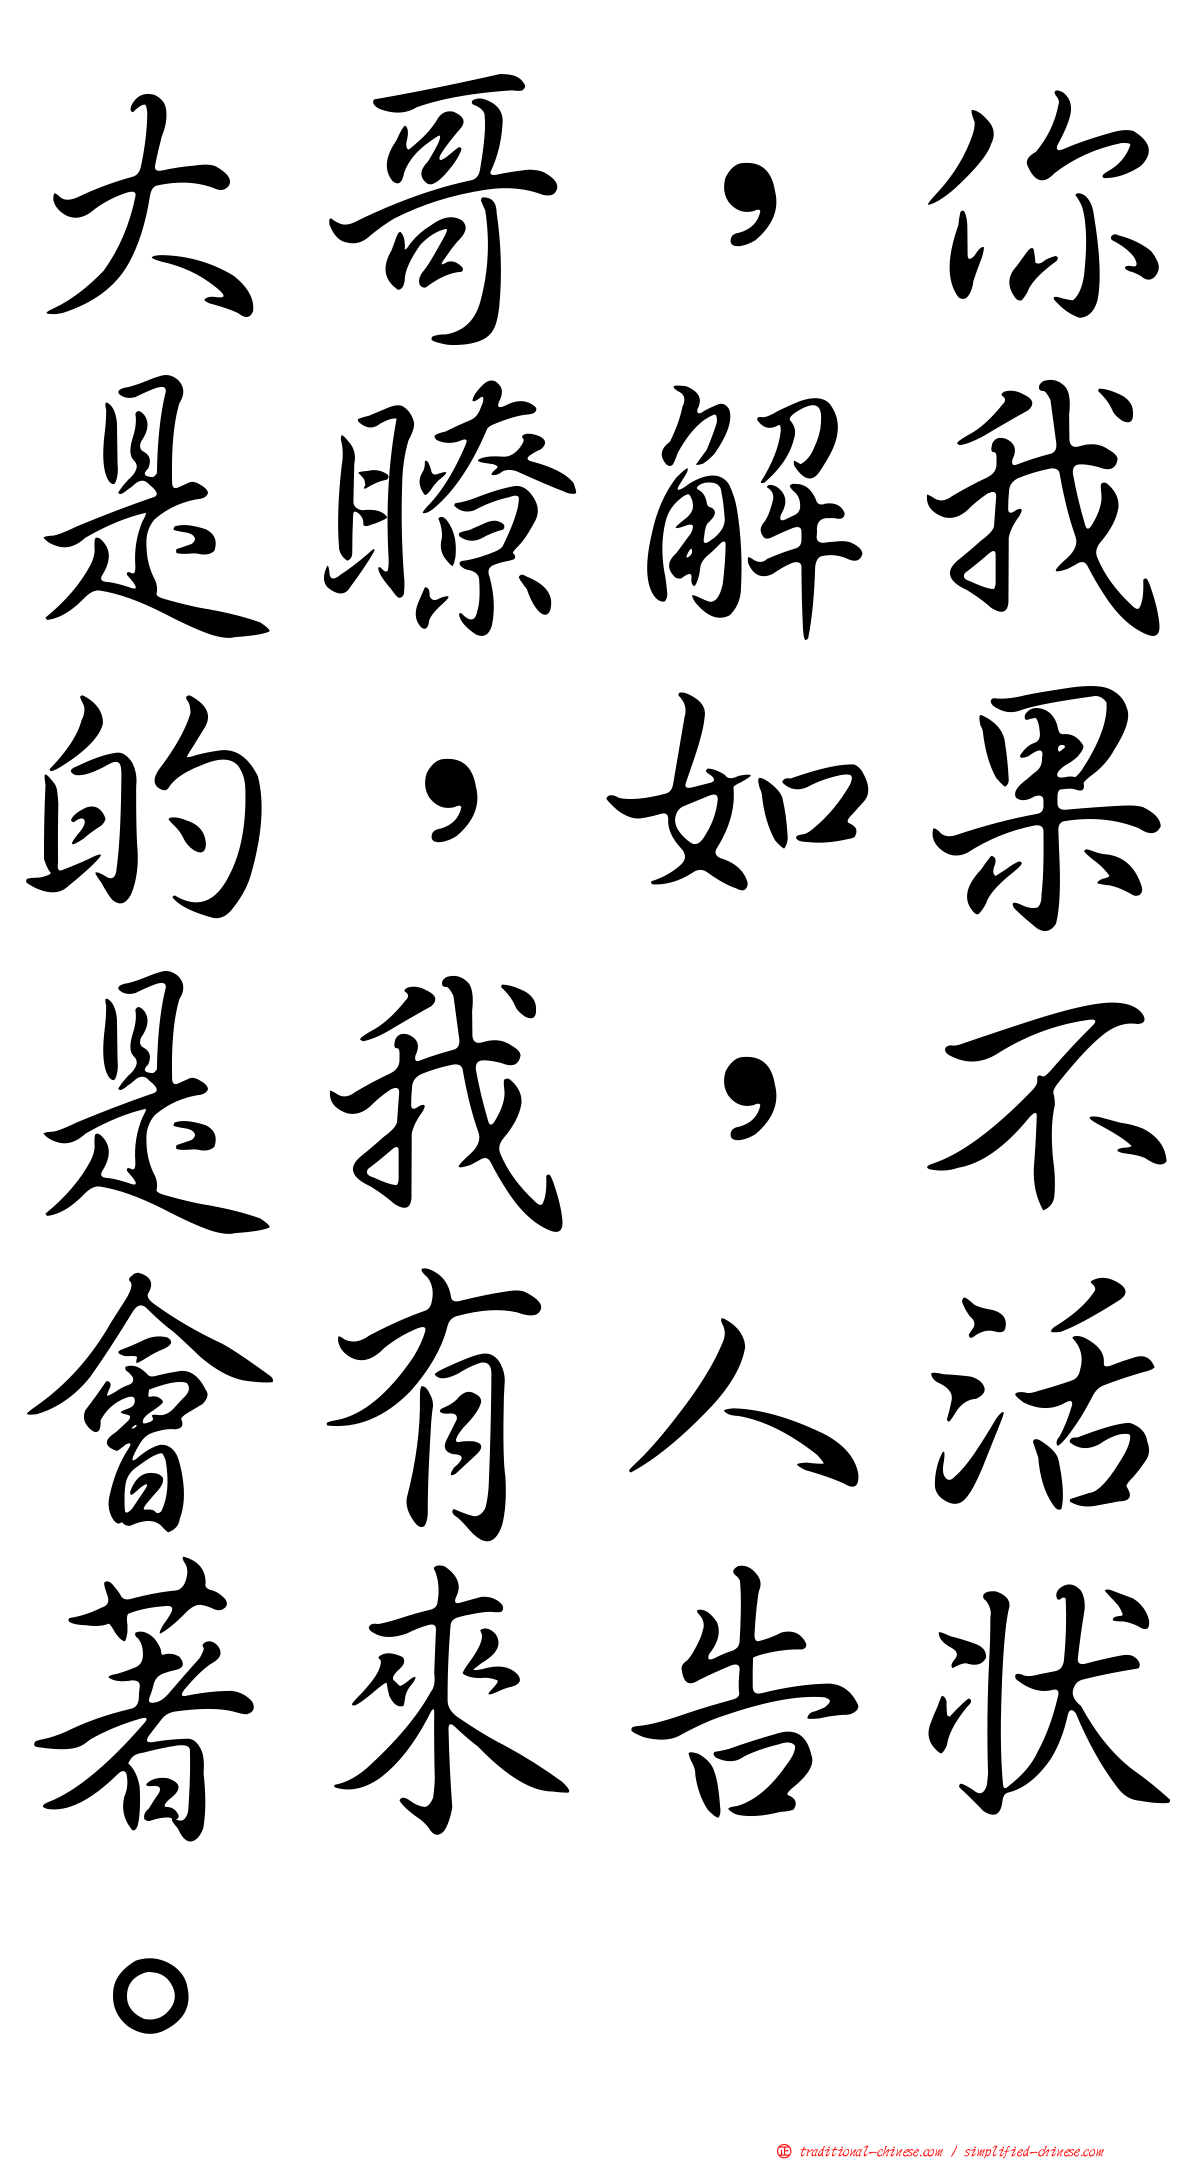 大哥，你
是瞭解我
的，如果
是我，不
會有人活
著來告狀
。
正 traditional-chinese.com / simplified-chinese.com